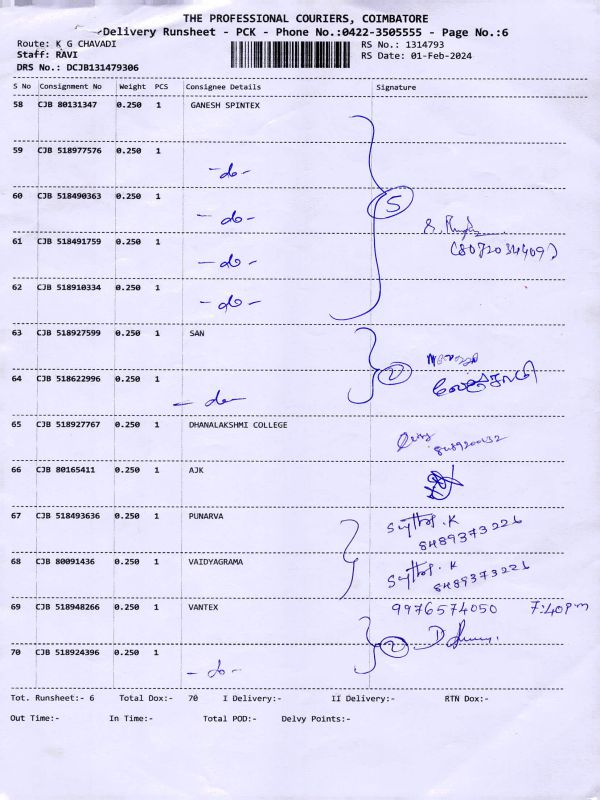 THE PROFESSIONAL COURIERS, COIMBATORE
Delivery Runsheet - PCK - Phone No.:0422-3505555 - Page No.:6
Route: K G CHAVADI
RS No.: 1314793
Staff: RAVI
RS Date: 01-Feb-2024
DRS No.: DCJB131479306
S No Consignment No Weight PCS Consignee Details Signature
58 CJB 80131347 0.250 1 GANESH SPINTEX
59 CJB 518977576 0.250 1
-do-
60 CJB 518490363 0.250 1
5
-do-
61 CJB 518491759 0.250 1
(8072034409)
-do-
62 CJB 518910334 0.250 1
-do-
63 CJB 518927599 0.250 1 SAN
64 CJB 518622996 0.250 1
2
-do-
65 CJB 518927767 0.250 1 DHANALAKSHMI COLLEGE
66 CJB 80165411 0.250 1 AJK
67 CJB 518493636 0.250 1 PUNARVA
8489373226
68 CJB 80091436 0.250 1 VAIDYAGRAMA
8489373226
69 CJB 518948266 0.250 1 VANTEX 9976574050 7:40pm
70 CJB 518924396 0.250 1
2
-do-
Tot. Runsheet:- 6 Total Dox:- 70 I Delivery:- II Delivery:- RTN Dox:-
Out Time:- In Time:- Total POD:- Delvy Points:-